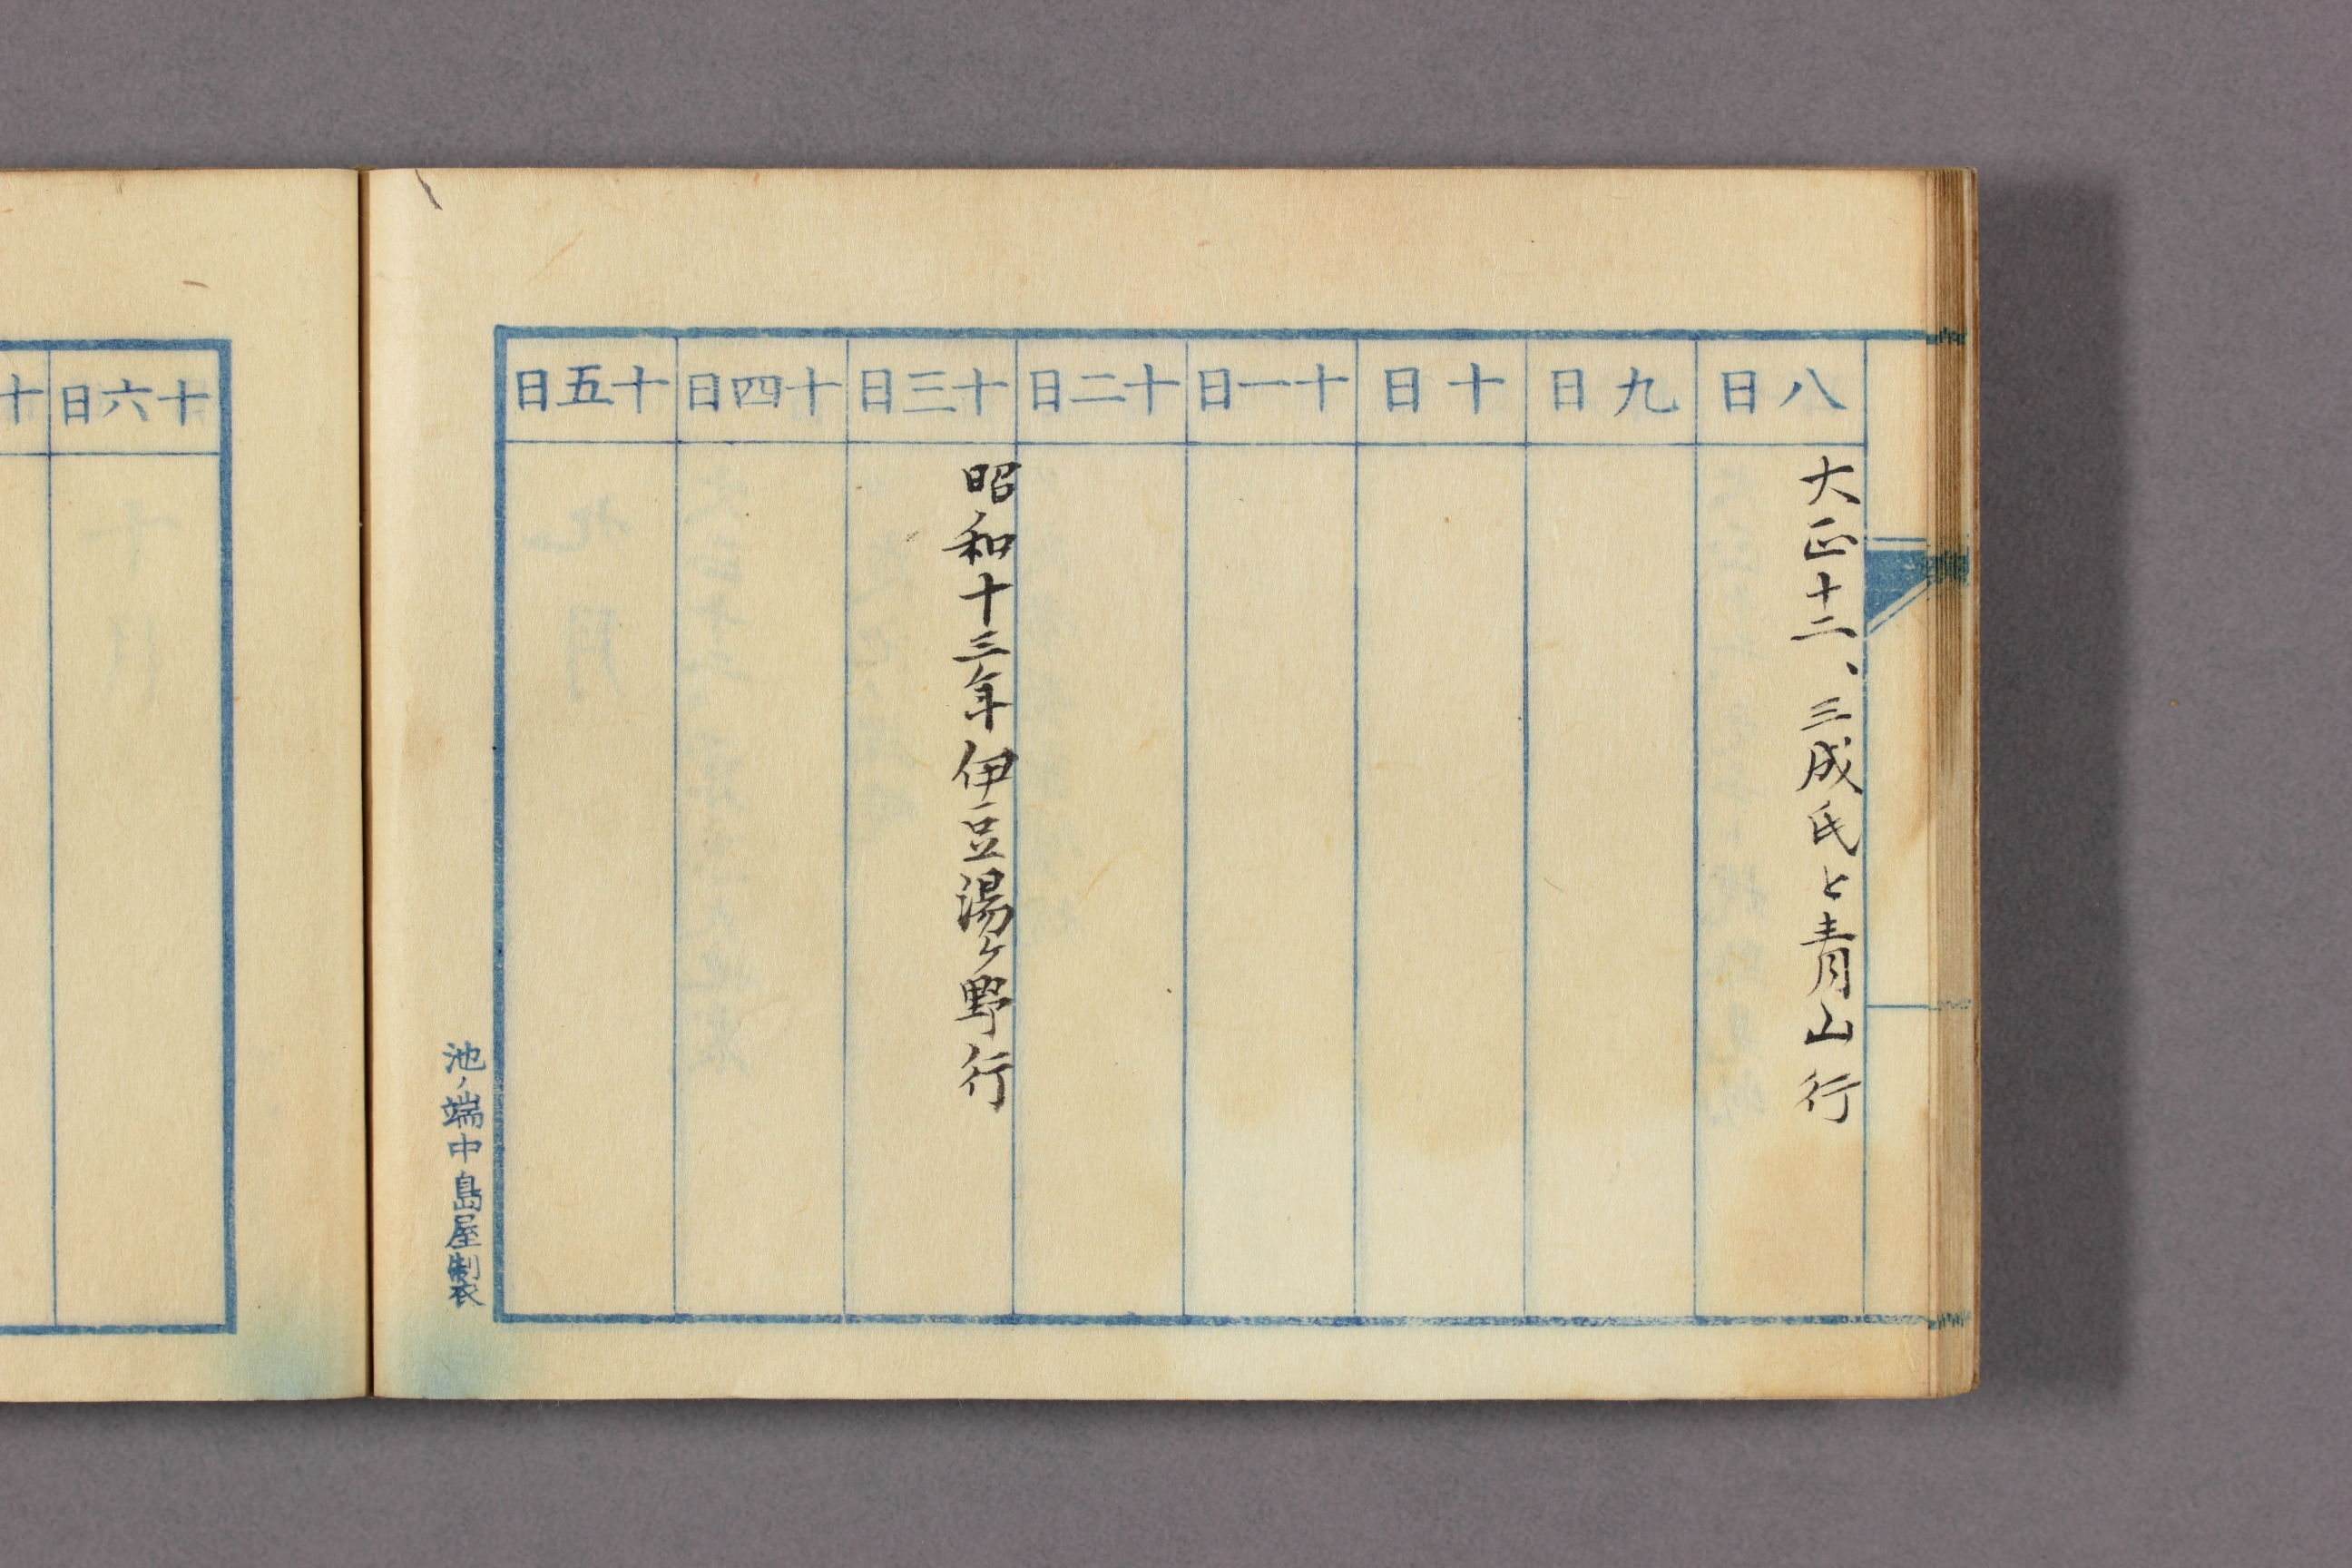 八日
大正十二、三成氏と青山行
九日
十日
十一日
十二日
十三日
昭和十三年伊豆湯ヶ野行
十四日
十五日
池ノ端中島屋製
十六日
十